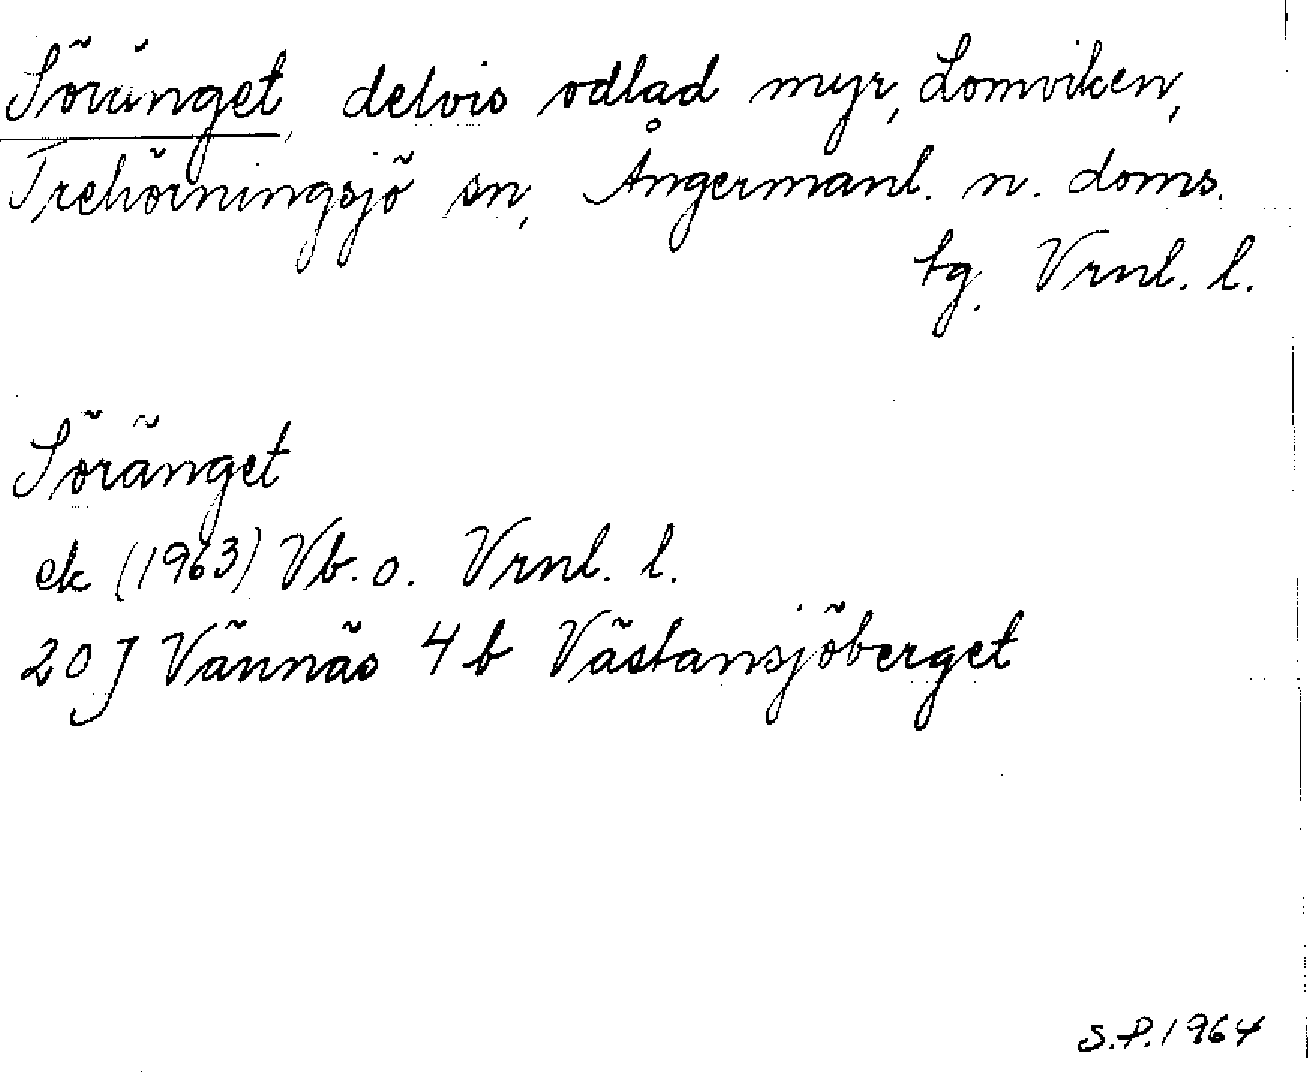 Söränget, delvis odlad myr, Lomviken,
Trehörningsjö sn, Ångermanl. n. doms.
tg. Vrnl. l.
Söränget
ek (1963) Vb. o. Vrnl. l.
20 J Vännäs 4 b Västansjöberget
S.P. 1964